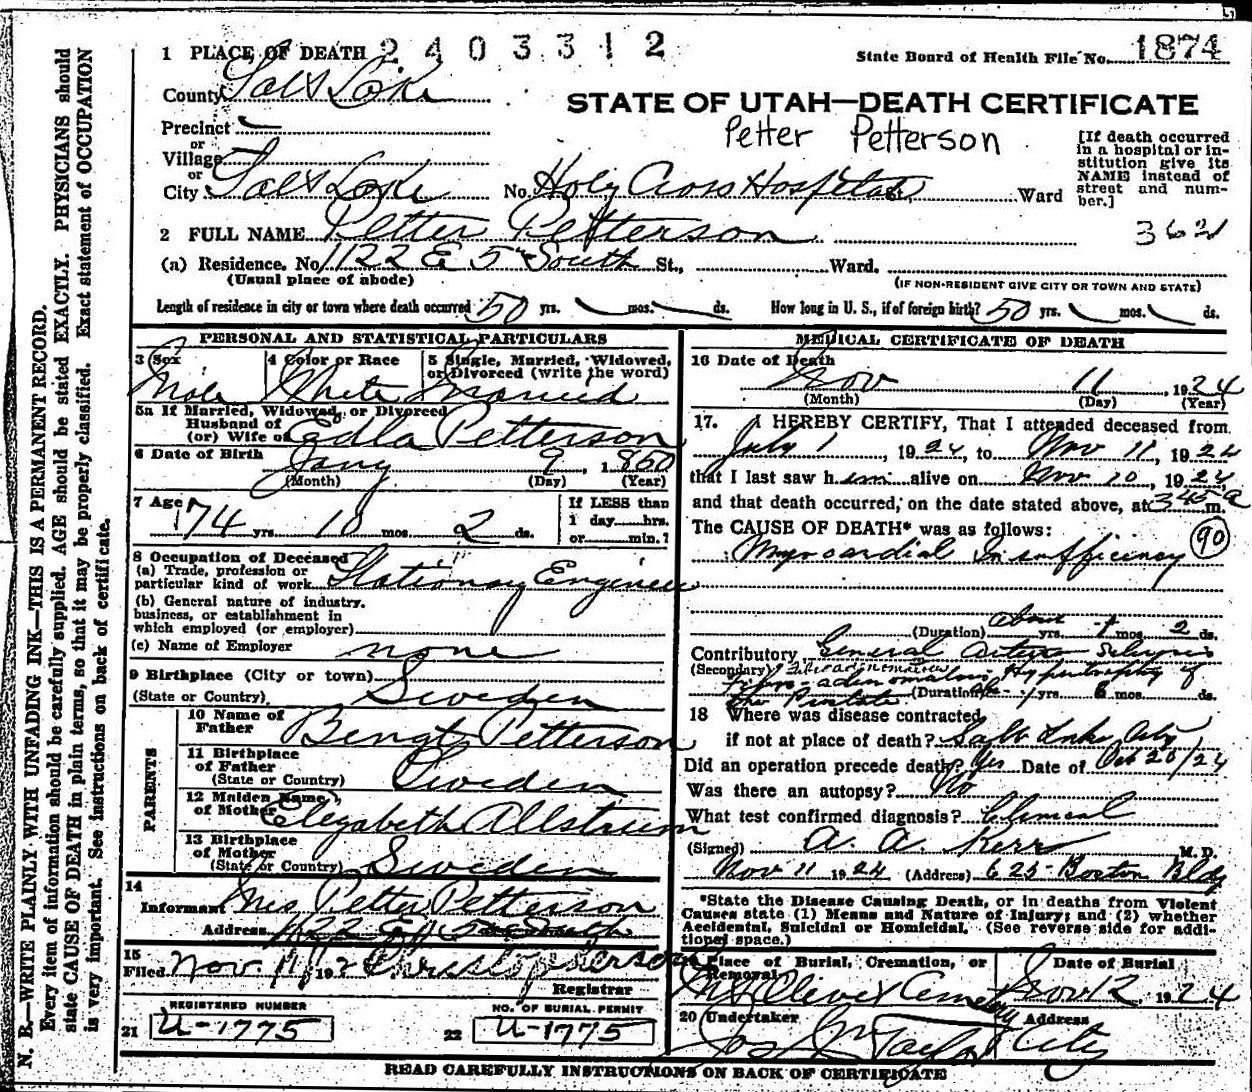 1 PLACE OF DEATH 2403312
State Board of Health File No. 1874
County Salt Lake
STATE OF UTAH—DEATH CERTIFICATE
Petter Petterson
Precinct
or
Village
or
City Salt Lake No. Holy Cross Hospital St., Ward
[If death occurred
in a hospital or in-
stitution give its
NAME instead of
street and num-
ber.]
2 FULL NAME Petter Petterson
362
(a) Residence, No. 1122 E 5th South St., Ward.
(Usual place of abode)
(IF NON-RESIDENT GIVE CITY OR TOWN AND STATE)
Length of residence in city or town where death occurred 50 yrs. mos. ds. How long in U. S., if of foreign birth? 50 yrs. mos. ds.
PERSONAL AND STATISTICAL PARTICULARS
3 Sex
Male
4 Color or Race
White
5 Single, Married, Widowed,
or Divorced (write the word)
Married
5a If Married, Widowed, or Divorced
Husband of
(or) Wife of Edla Petterson
6 Date of Birth Jany 9, 1850
(Month) (Day) (Year)
7 Age 74 yrs. 10 mos. 2 ds.
If LESS than
1 day hrs.
or min.?
8 Occupation of Deceased
(a) Trade, profession or
particular kind of work Stationary Engineer
(b) General nature of industry.
business, or establishment in
which employed (or employer)
(c) Name of Employer none
9 Birthplace (City or town)
(State or Country) Sweden
PARENTS
10 Name of
Father Bengt Petterson
11 Birthplace
of Father
(State or Country) Sweden
12 Maiden Name
of Mother Elezabeth Allstrum
13 Birthplace
of Mother
(State or Country) Sweden
14
Informant Mrs Petter Petterson
Address 1122 E 5th South
15
Filed Nov. 11, 192
Registrar
REGISTERED NUMBER
21 U-1775
NO. OF BURIAL PERMIT
22 U-1775
MEDICAL CERTIFICATE OF DEATH
16 Date of Death
Nov 11, 1924
(Month) (Day) (Year)
17. I HEREBY CERTIFY, That I attended deceased from
July 1, 1924, to Nov 11, 1924
that I last saw him alive on Nov 10, 1924
and that death occurred, on the date stated above, at 345 a m.
The CAUSE OF DEATH* was as follows: 90
Myocardial Insufficiency
(Duration) about yrs. 1 mos. 2 ds.
Contributory General Arterio Sclerosis
(Secondary) Fibroadenomatous
Fibro-adenomatous Hypertrophy of
the Prostate (Duration) yrs. 6 mos. ds.
18 Where was disease contracted
if not at place of death? Salt Lake City
Did an operation precede death? Yes Date of Oct 20/24
Was there an autopsy? No
What test confirmed diagnosis? Clinical
(Signed) A. A. Kerr M. D.
Nov 11 1924 (Address) 625 Boston Bldg
*State the Disease Causing Death, or in deaths from Violent
Causes state (1) Means and Nature of Injury; and (2) whether
Accidental, Suicidal or Homicidal. (See reverse side for addi-
tional space.)
Place of Burial, Cremation, or
Removal
Mt Olivet Cemetery
Date of Burial
Nov 12, 1924
20 Undertaker
Jos Wm Taylor
Address
City
READ CAREFULLY INSTRUCTIONS ON BACK OF CERTIFICATE
N. B.—WRITE PLAINLY WITH UNFADING INK—THIS IS A PERMANENT RECORD.
Every item of information should be carefully supplied. AGE should be stated EXACTLY. PHYSICIANS should
state CAUSE OF DEATH in plain terms, so that it may be properly classified. Exact statement of OCCUPATION
is very important. See instructions on back of certificate.